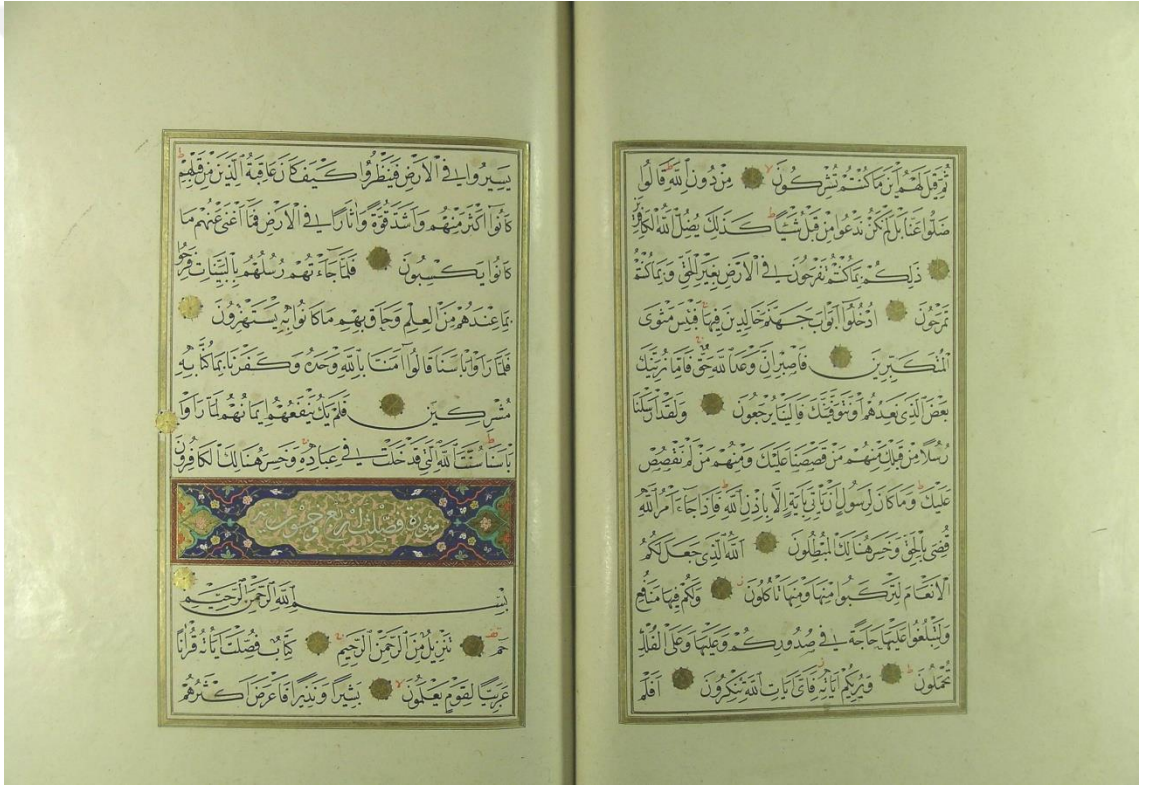 ثُمَّ قِيلَ لَهُمْ اَيْنَ مَا كُنْتُمْ تُشْرِكُونَ مِنْ دُونِ اللّٰهِ قَالُوا
ضَلُّوا عَنَّا بَلْ لَمْ نَكُنْ نَدْعُوا مِنْ قَبْلُ شَيْئًا كَذٰلِكَ يُضِلُّ اللّٰهُ الْكَافِرِينَ
ذٰلِكُمْ بِمَا كُنْتُمْ تَفْرَحُونَ فِى الْاَرْضِ بِغَيْرِ الْحَقِّ وَبِمَا كُنْتُمْ
تَمْرَحُونَ اُدْخُلُوا اَبْوَابَ جَهَنَّمَ خَالِدِينَ فِيهَا فَبِئْسَ مَثْوَى
الْمُتَكَبِّرِينَ فَاصْبِرْ اِنَّ وَعْدَ اللّٰهِ حَقٌّ فَاِمَّا نُرِيَنَّكَ
بَعْضَ الَّذِى نَعِدُهُمْ اَوْ نَتَوَفَّيَنَّكَ فَاِلَيْنَا يُرْجَعُونَ وَلَقَدْ اَرْسَلْنَا
رُسُلًا مِنْ قَبْلِكَ مِنْهُمْ مَنْ قَصَصْنَا عَلَيْكَ وَمِنْهُمْ مَنْ لَمْ نَقْصُصْ
عَلَيْكَ وَمَا كَانَ لِرَسُولٍ اَنْ يَاْتِىَ بِاٰيَةٍ اِلَّا بِاِذْنِ اللّٰهِ فَاِذَا جَاءَ اَمْرُ اللّٰهِ
قُضِىَ بِالْحَقِّ وَخَسِرَ هُنَالِكَ الْمُبْطِلُونَ اَللّٰهُ الَّذِى جَعَلَ لَكُمُ
الْاَنْعَامَ لِتَرْكَبُوا مِنْهَا وَمِنْهَا تَاْكُلُونَ وَلَكُمْ فِيهَا مَنَافِعُ
وَلِتَبْلُغُوا عَلَيْهَا حَاجَةً فِى صُدُورِكُمْ وَعَلَيْهَا وَعَلَى الْفُلْكِ
تُحْمَلُونَ وَيُرِيكُمْ اٰيَاتِهِ فَاَىَّ اٰيَاتِ اللّٰهِ تُنْكِرُونَ اَفَلَمْ
يَسِيرُوا فِى الْاَرْضِ فَيَنْظُرُوا كَيْفَ كَانَ عَاقِبَةُ الَّذِينَ مِنْ قَبْلِهِمْ
كَانُوا اَكْثَرَ مِنْهُمْ وَاَشَدَّ قُوَّةً وَاٰثَارًا فِى الْاَرْضِ فَمَا اَغْنٰى عَنْهُمْ مَا
كَانُوا يَكْسِبُونَ فَلَمَّا جَاءَتْهُمْ رُسُلُهُمْ بِالْبَيِّنَاتِ فَرِحُوا
بِمَا عِنْدَهُمْ مِنَ الْعِلْمِ وَحَاقَ بِهِمْ مَا كَانُوا بِهِ يَسْتَهْزِؤُنَ
فَلَمَّا رَاَوْا بَاْسَنَا قَالُوا اٰمَنَّا بِاللّٰهِ وَحْدَهُ وَكَفَرْنَا بِمَا كُنَّا بِهِ
مُشْرِكِينَ فَلَمْ يَكُ يَنْفَعُهُمْ اِيمَانُهُمْ لَمَّا رَاَوْا
بَاْسَنَا سُنَّتَ اللّٰهِ الَّتِى قَدْ خَلَتْ فِى عِبَادِهِ وَخَسِرَ هُنَالِكَ الْكَافِرُونَ
سورة فصلت اربع وخمسون
بِسْمِ اللّٰهِ الرَّحْمٰنِ الرَّحِيمِ
حٰمٓ تَنْزِيلٌ مِنَ الرَّحْمٰنِ الرَّحِيمِ كِتَابٌ فُصِّلَتْ اٰيَاتُهُ قُرْاٰنًا
عَرَبِيًّا لِقَوْمٍ يَعْلَمُونَ بَشِيرًا وَنَذِيرًا فَاَعْرَضَ اَكْثَرُهُمْ